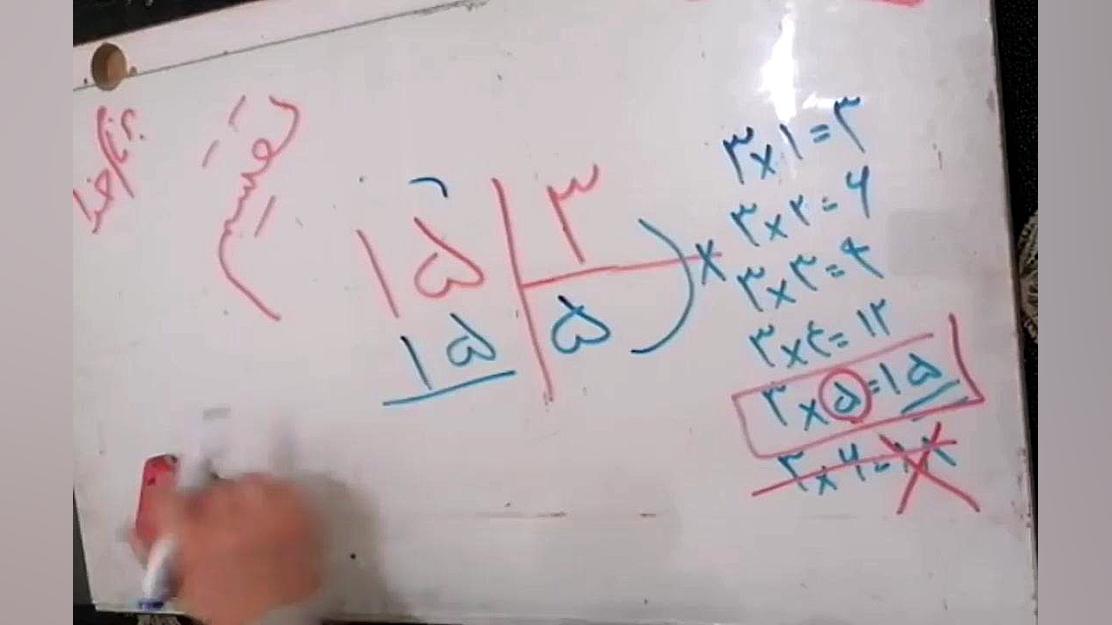 تقسیم
۱۵ | ۳
۱۵ ۵ ×
۳×۱=۳
۳×۲=۶
۳×۳=۹
۳×۴=۱۲
۳×۵=۱۵
۳×۶=۱۸